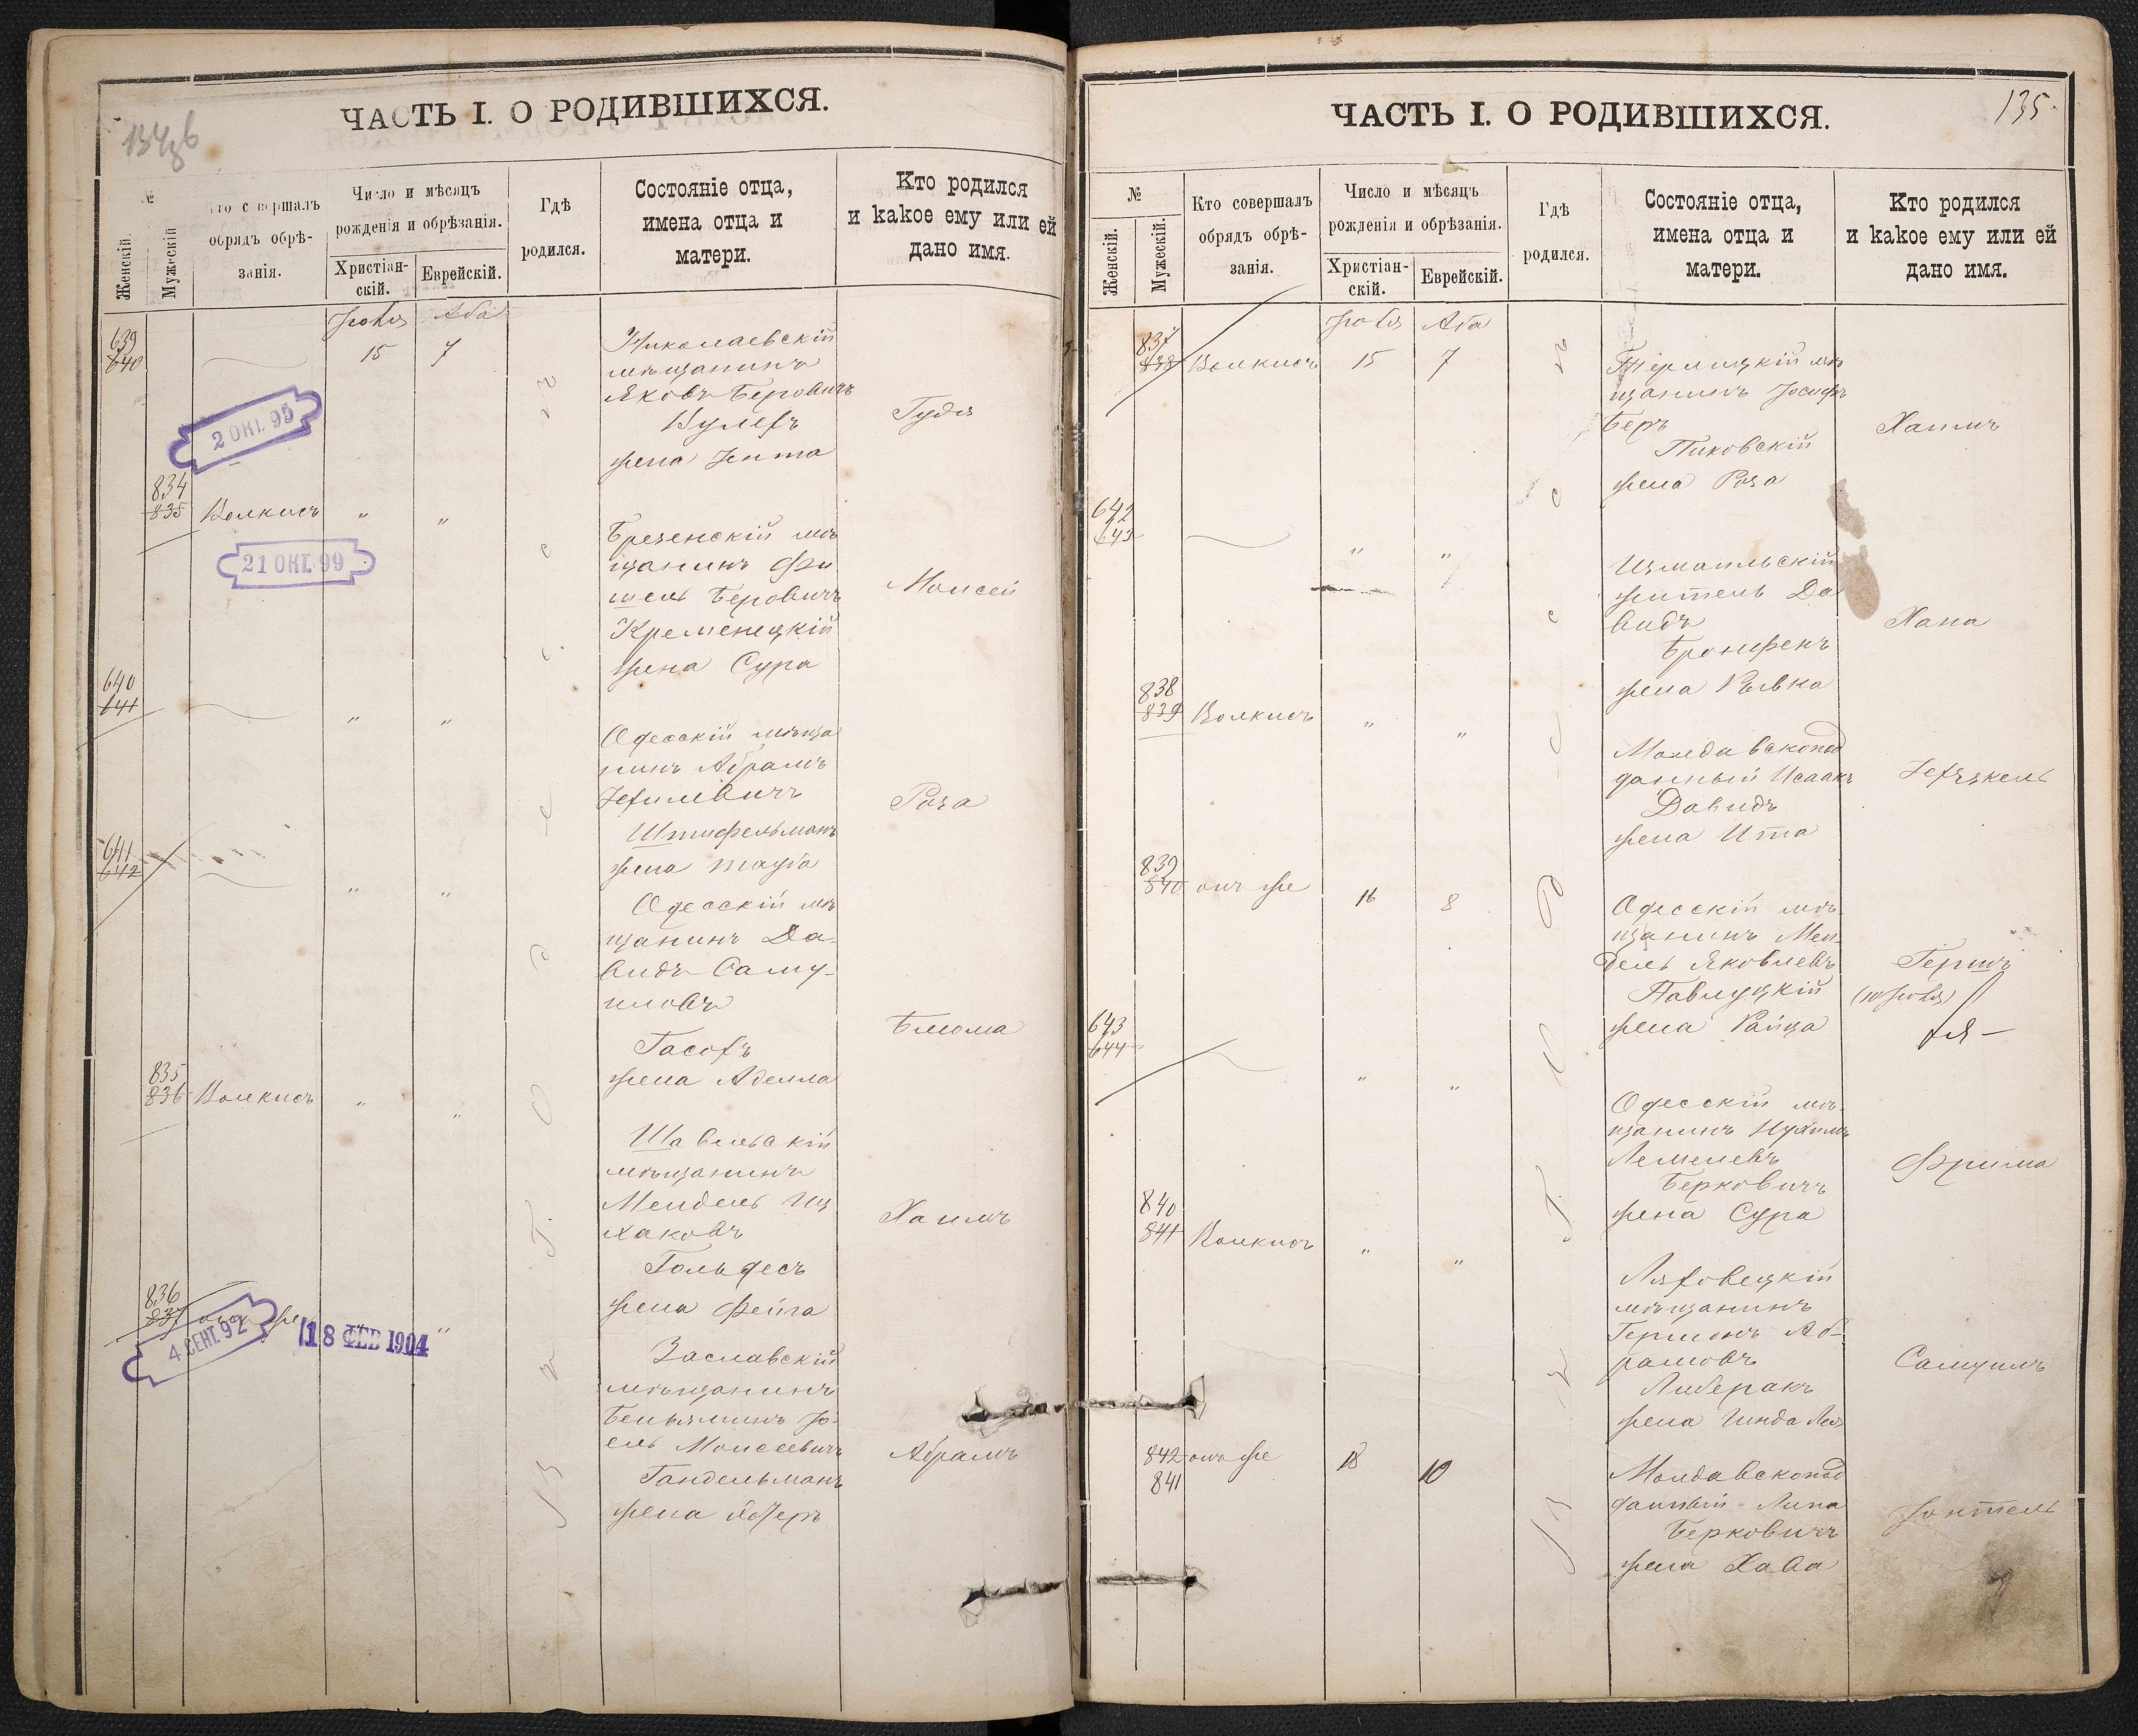 ЧАСТЬ I. О РОДИВШИХСЯ.
№
Женскій.
Мужескій
обрядъ обрѣ-
занія.
Число и мѣсяцъ
рожденія и обрѣзанія.
Христіан-
скій.
Еврейскій.
Гдѣ
родился.
Состояніе отца,
имена отца и
матери.
Кто родился
и какое ему или ей
дано имя.
Іюля Аба
639
640
15 7
Николаевскій
мѣщанинъ
Яковъ Беровичъ
жена Ента
Гудя
2 ОКТ. 95
834
835
Волкисъ " "
21 ОКТ. 99
Брезенскій мѣ
щанинъ Фи
шель Беровичъ
Кременецкій
жена Сура
Моисей
640
641
" "
Одесскій мѣща
нинъ Абрамъ
Іехилевичъ
Штифельманъ
жена Тауба
Роза
641
642
" "
Одесскій мѣ
щанинъ Да-
видъ Саму-
иловъ
Гасохъ
жена Аделла
Блюма
835
836
Волкисъ " "
Шавельскій
мѣщанинъ
Мендель Иц
хаковъ
Гольдесъ
жена Фейга
Хаимъ
836
837
онъ же
4 СЕНТ. 92
18 ФЕВ 1904
Заславскій
мѣщанинъ
Беньяминъ Іо-
ель Моисеевичъ
Гандельманъ
жена Эстеръ
Абрамъ
ЧАСТЬ I. О РОДИВШИХСЯ.
135
№
Женскій.
Мужескій.
Кто совершалъ
обрядъ обрѣ-
занія.
Число и мѣсяцъ
рожденія и обрѣзанія.
Христіан-
скій.
Еврейскій.
Гдѣ
родился.
Состояніе отца,
имена отца и
матери.
Кто родился
и какое ему или ей
дано имя.
Іюля Аба
837
838
Волкисъ 15 7
мѣ
щанинъ Іосифъ
Беръ
Пиковскій
жена Роза
Хаимъ
642
643
" "
Измаильскій
житель Да
видъ
Бронфенъ
жена Ривка
Хана
838
839
Волкисъ " "
Молдавскопод
данный Исаакъ
Давидъ
жена Ита
Іехезкель
839
840
онъ же 16 8
Одесскій мѣ-
щанинъ Мен-
дель Яковлевъ
Павлуцкій
жена Райца
Гершъ
(10 Іюля)
643
644
" "
Одесскій мѣ-
щанинъ Нухимъ
Лемелевъ
Берковичъ
жена Сура
Фрима
840
841
Волкисъ " "
Ляховецкій
мѣщанинъ
Гершонъ Аб-
рамовъ
Либеракъ
жена Гинда Лея
Самуилъ
842
841
онъ же 18 10
Молдавскопод
данный Липа
Берковичъ
жена Хава
Іонтель